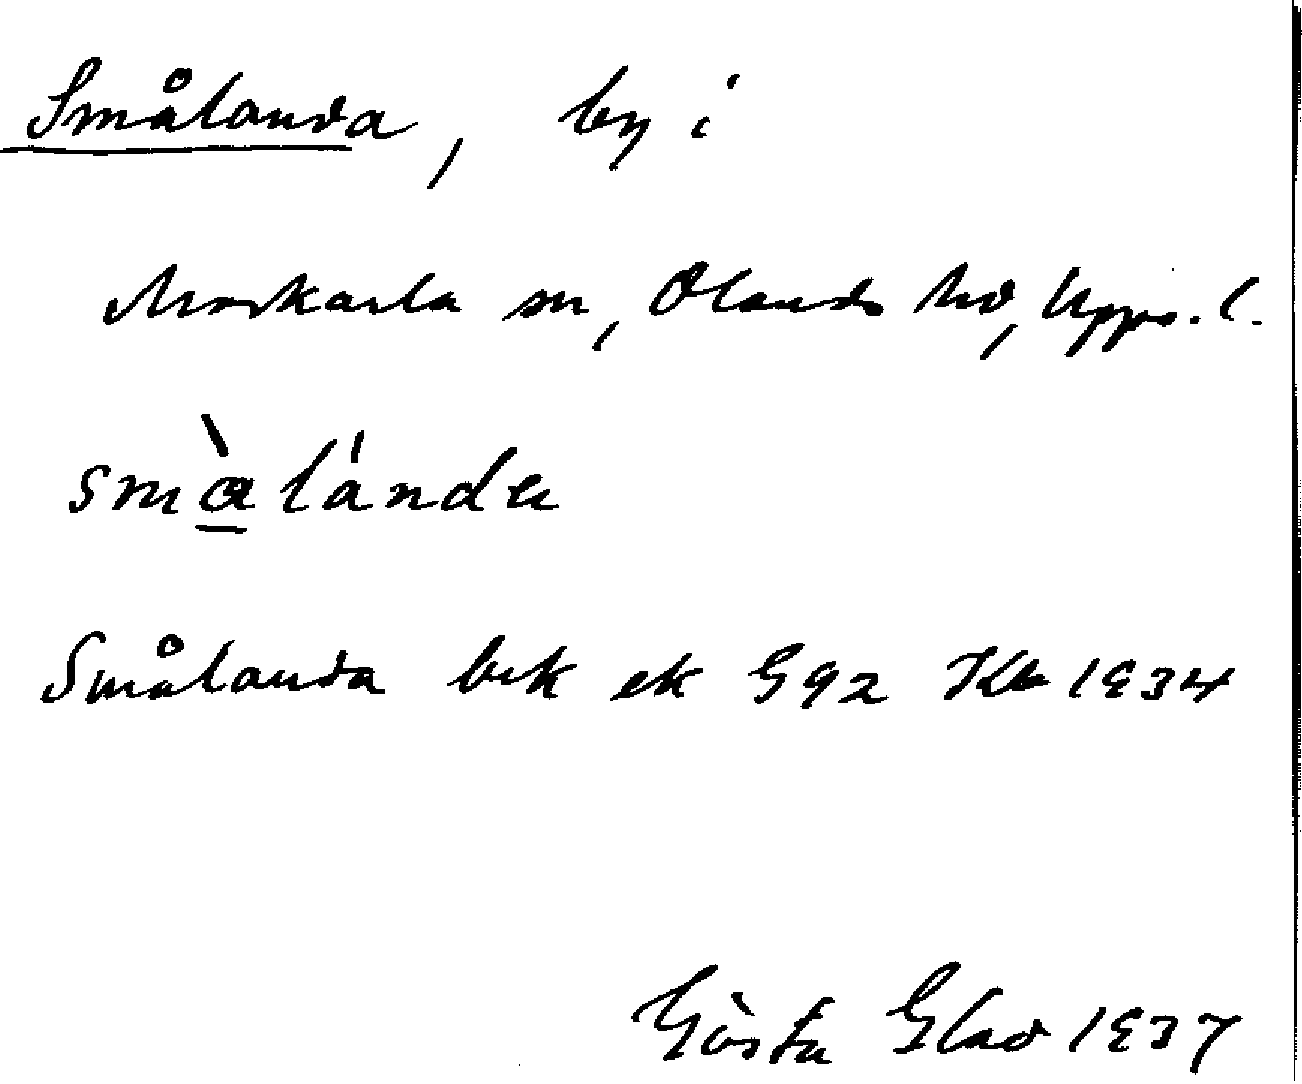 Smålanda, by i
Morkarla sn, Olands hd, Upps. l.
smàlánda
Smålanda bek ek G 92 Kb 1934
Gösta Glad 1937